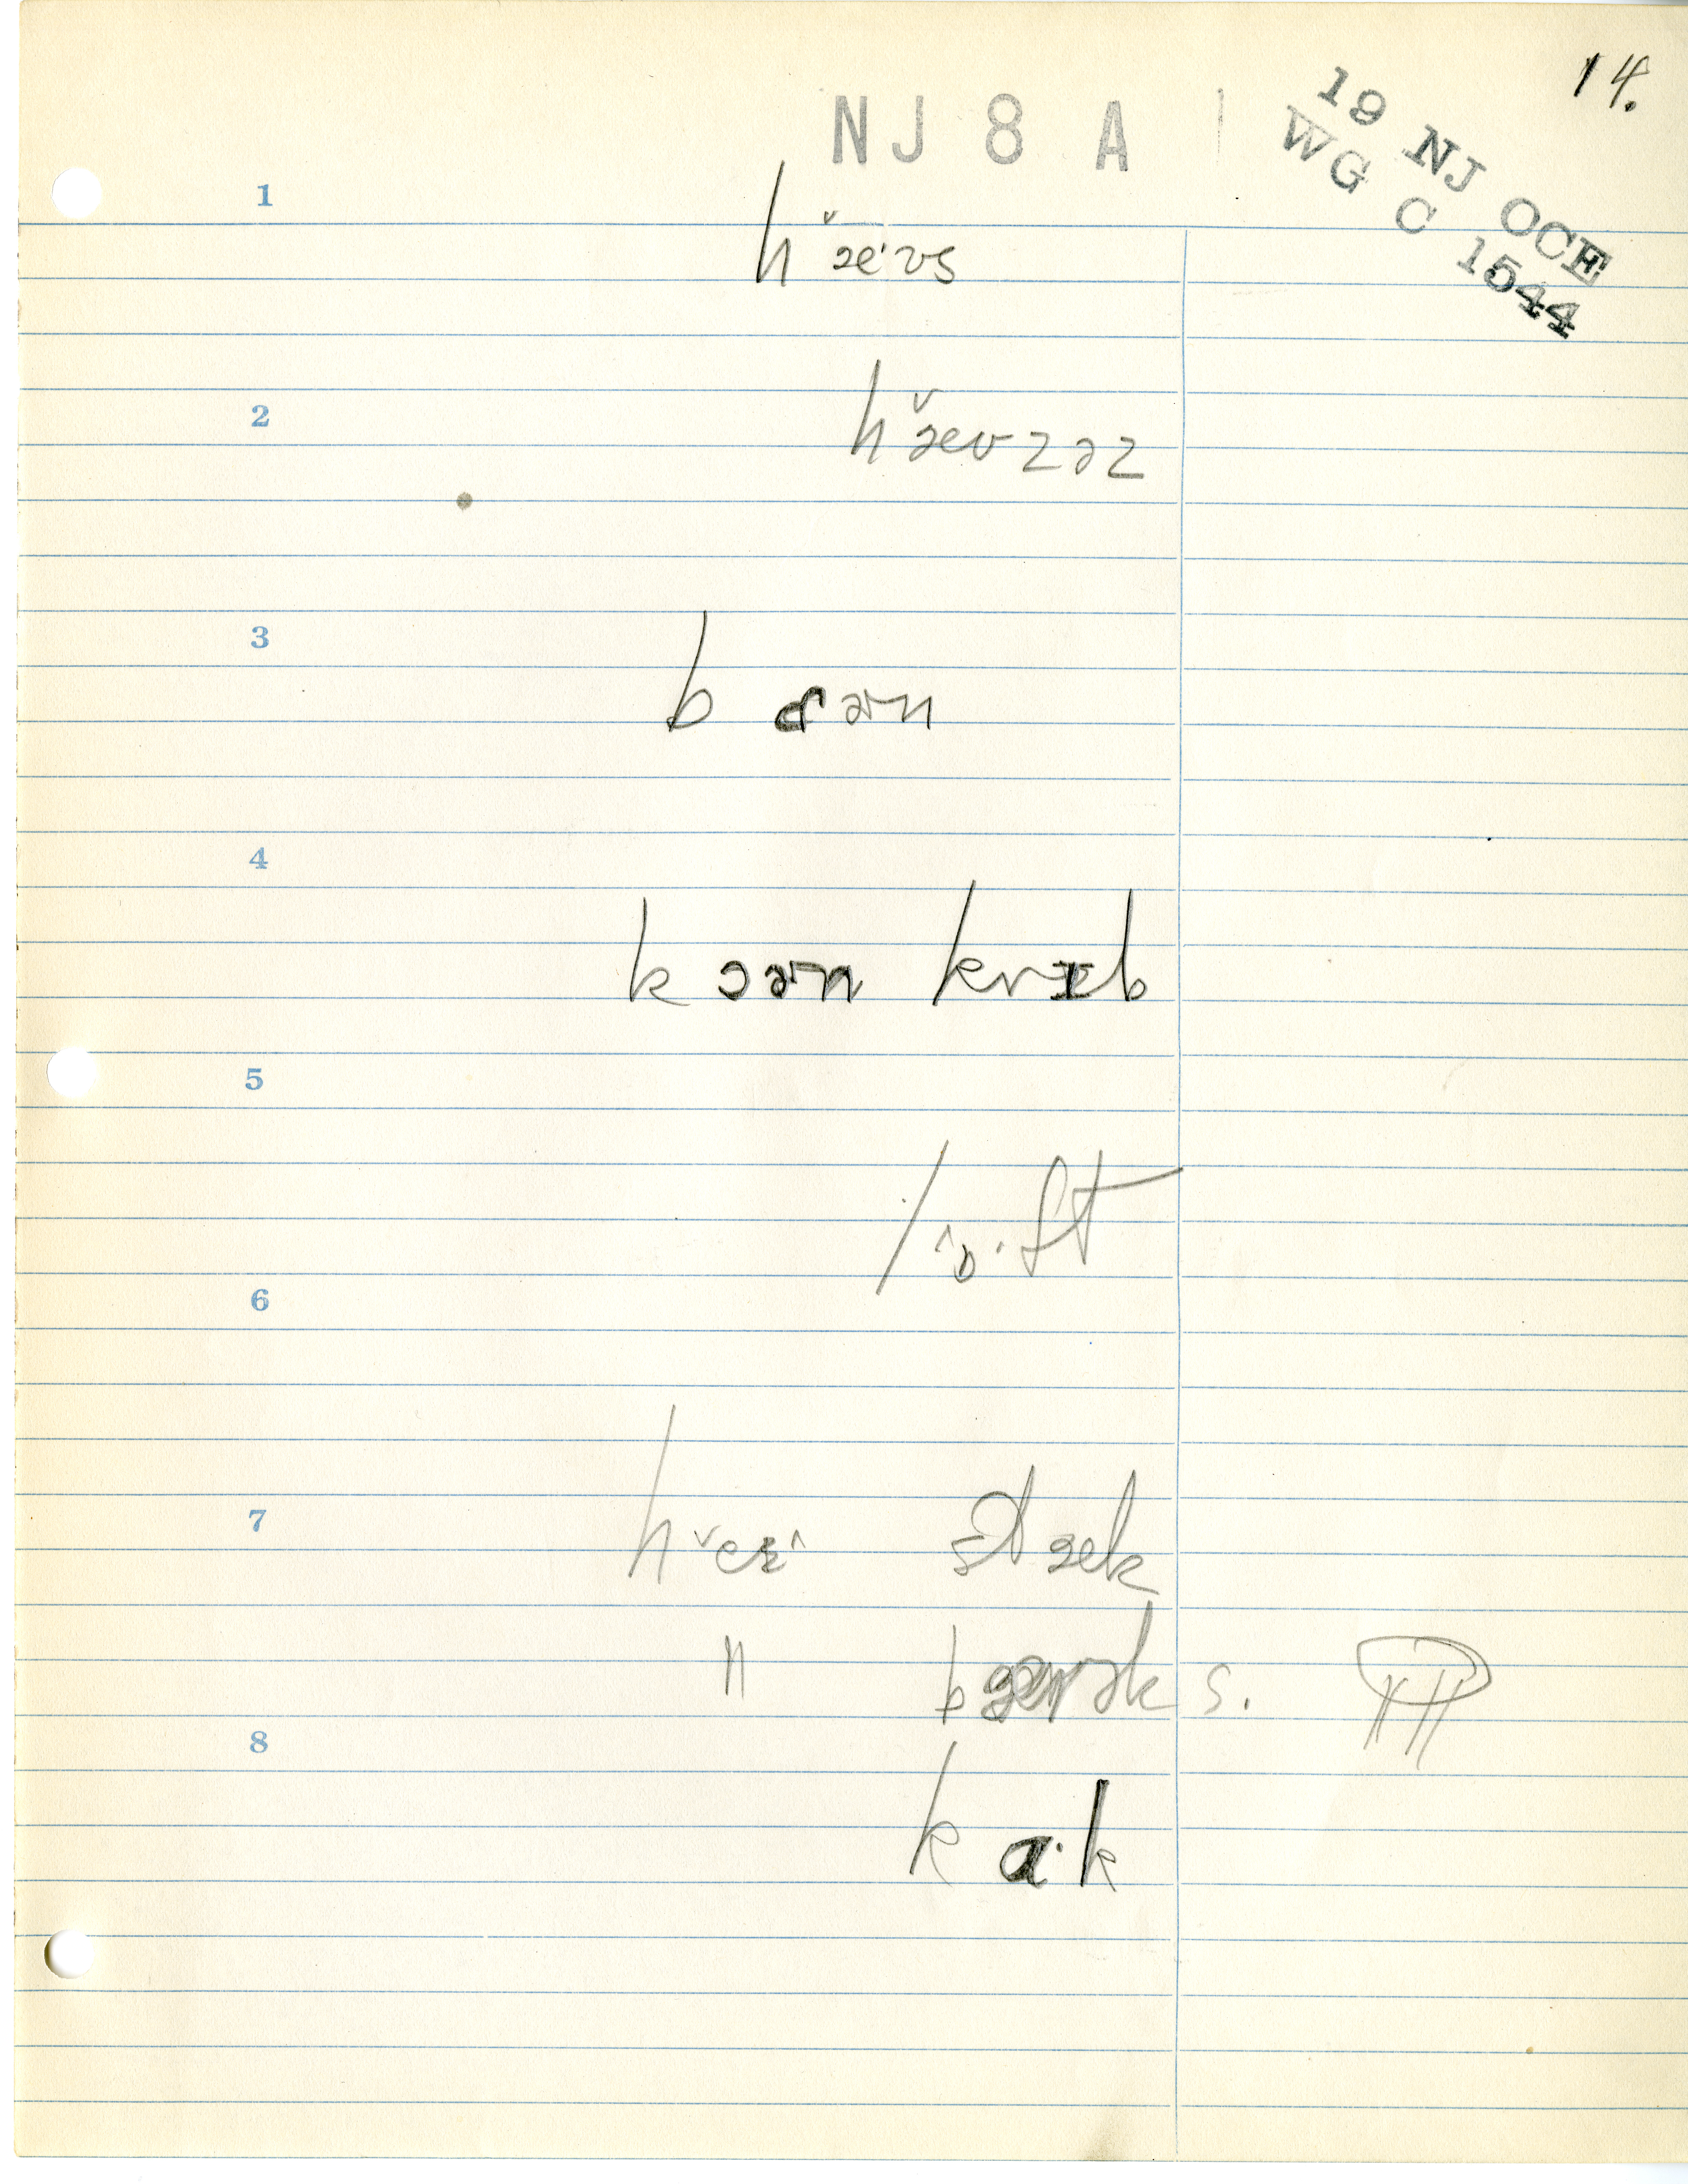 14.
NJ 8 A
19 NJ OCE
WG C 1544
1
h ˇæ·ʊs
2
hˇæʊzəz
3
b ɒɚn
4
k ɔɚn krɪb
5
lˆɒ·ft
6
7
hˇeɪˆ stæk
"
s.
8
k ɑ·k